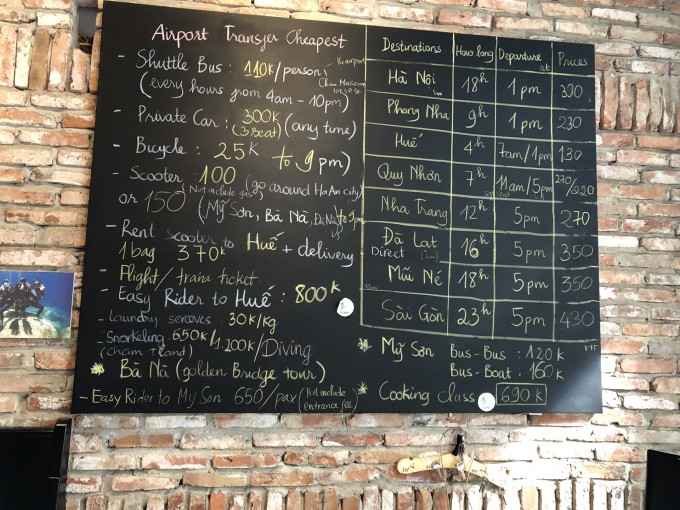 Airport Transfer Cheapest
- Shuttle Bus : 110k/person
(every hours from 4am - 10pm)
- Private Car : 300k (3seat) (any time)
- Bicycle : 25k to 9pm)
- Scooter : 100
Not include gas (go around HoiAn city)
or 150 (Mỹ Sơn, Bà Nà,
- Rent scooter to Huế + delivery
1 bag 370k
- Flight/ train ticket
- Easy Rider to Huế : 800k
- Laundry services 30k/kg
- Snorkeling 650k/1.200k/Diving
(cham island)
* Bà Nà (golden Bridge tour)
- Easy Rider to My Son 650/pax (Not include entrance fee
Destinations How long Departure at Prices
Hà Nội 18h 1pm 390
Phong Nha 9h 1pm 230
Huế 4h 7am/1pm 130
Quy Nhơn 7h 11am/5pm 270/220
Nha Trang 12h 5pm 270
Đà Lạt Direct 16h 5pm 350
Mũi Né 18h 5pm 350
Sài Gòn 23h 5pm 430
* Mỹ Sơn Bus - Bus : 120k
Bus - Boat : 160k
* Cooking class 690k